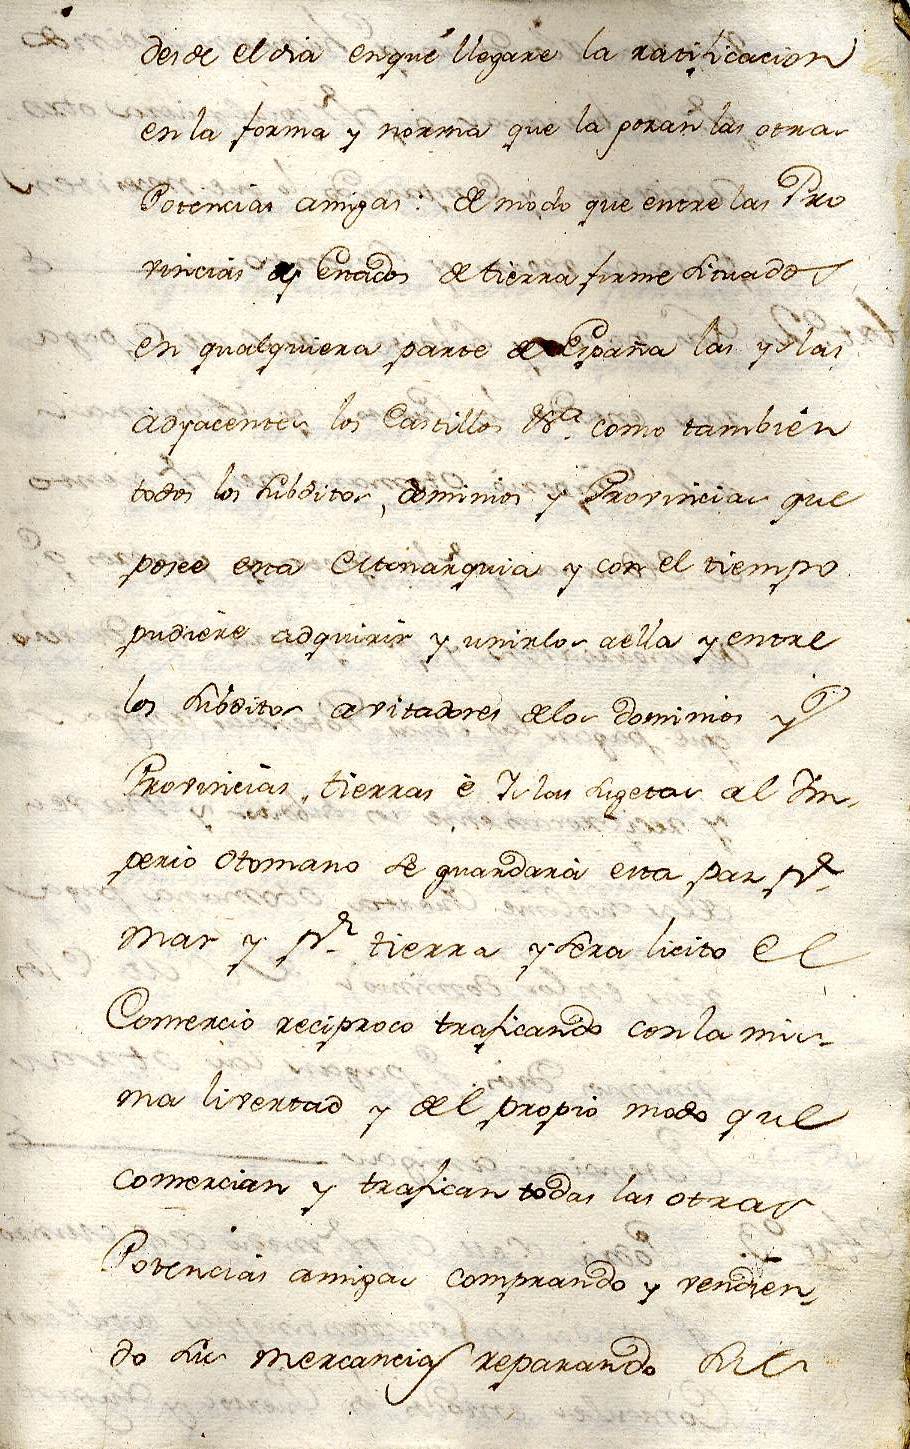 desde el dia enque llegare la ratificacion
en la forma y norma que la gozan las otras
Potencias amigas: de modo que entre las Pro
vincias y Estados de tierra firme situados
en qualquiera parte de España las Yslas
adyacentes los Castillos &ª. como tambien
todos los subditos, dominios y Provincias que
posee esta Monarquia y con el tiempo
pudiere adquirir y unirlos aella y entre
los subditos avitadores delos dominios y
Provincias, tierras è Yslas sugetas al Im-
perio Otomano se guardarà esta paz pr.
mar y pr. tierra y sera licito el
Comercio reciproco traficando con la mis-
ma livertad y del propio modo que
comercian y trafican todas las otras
Potencias amigas comprando y vendien-
do sus mercancias reparando sus